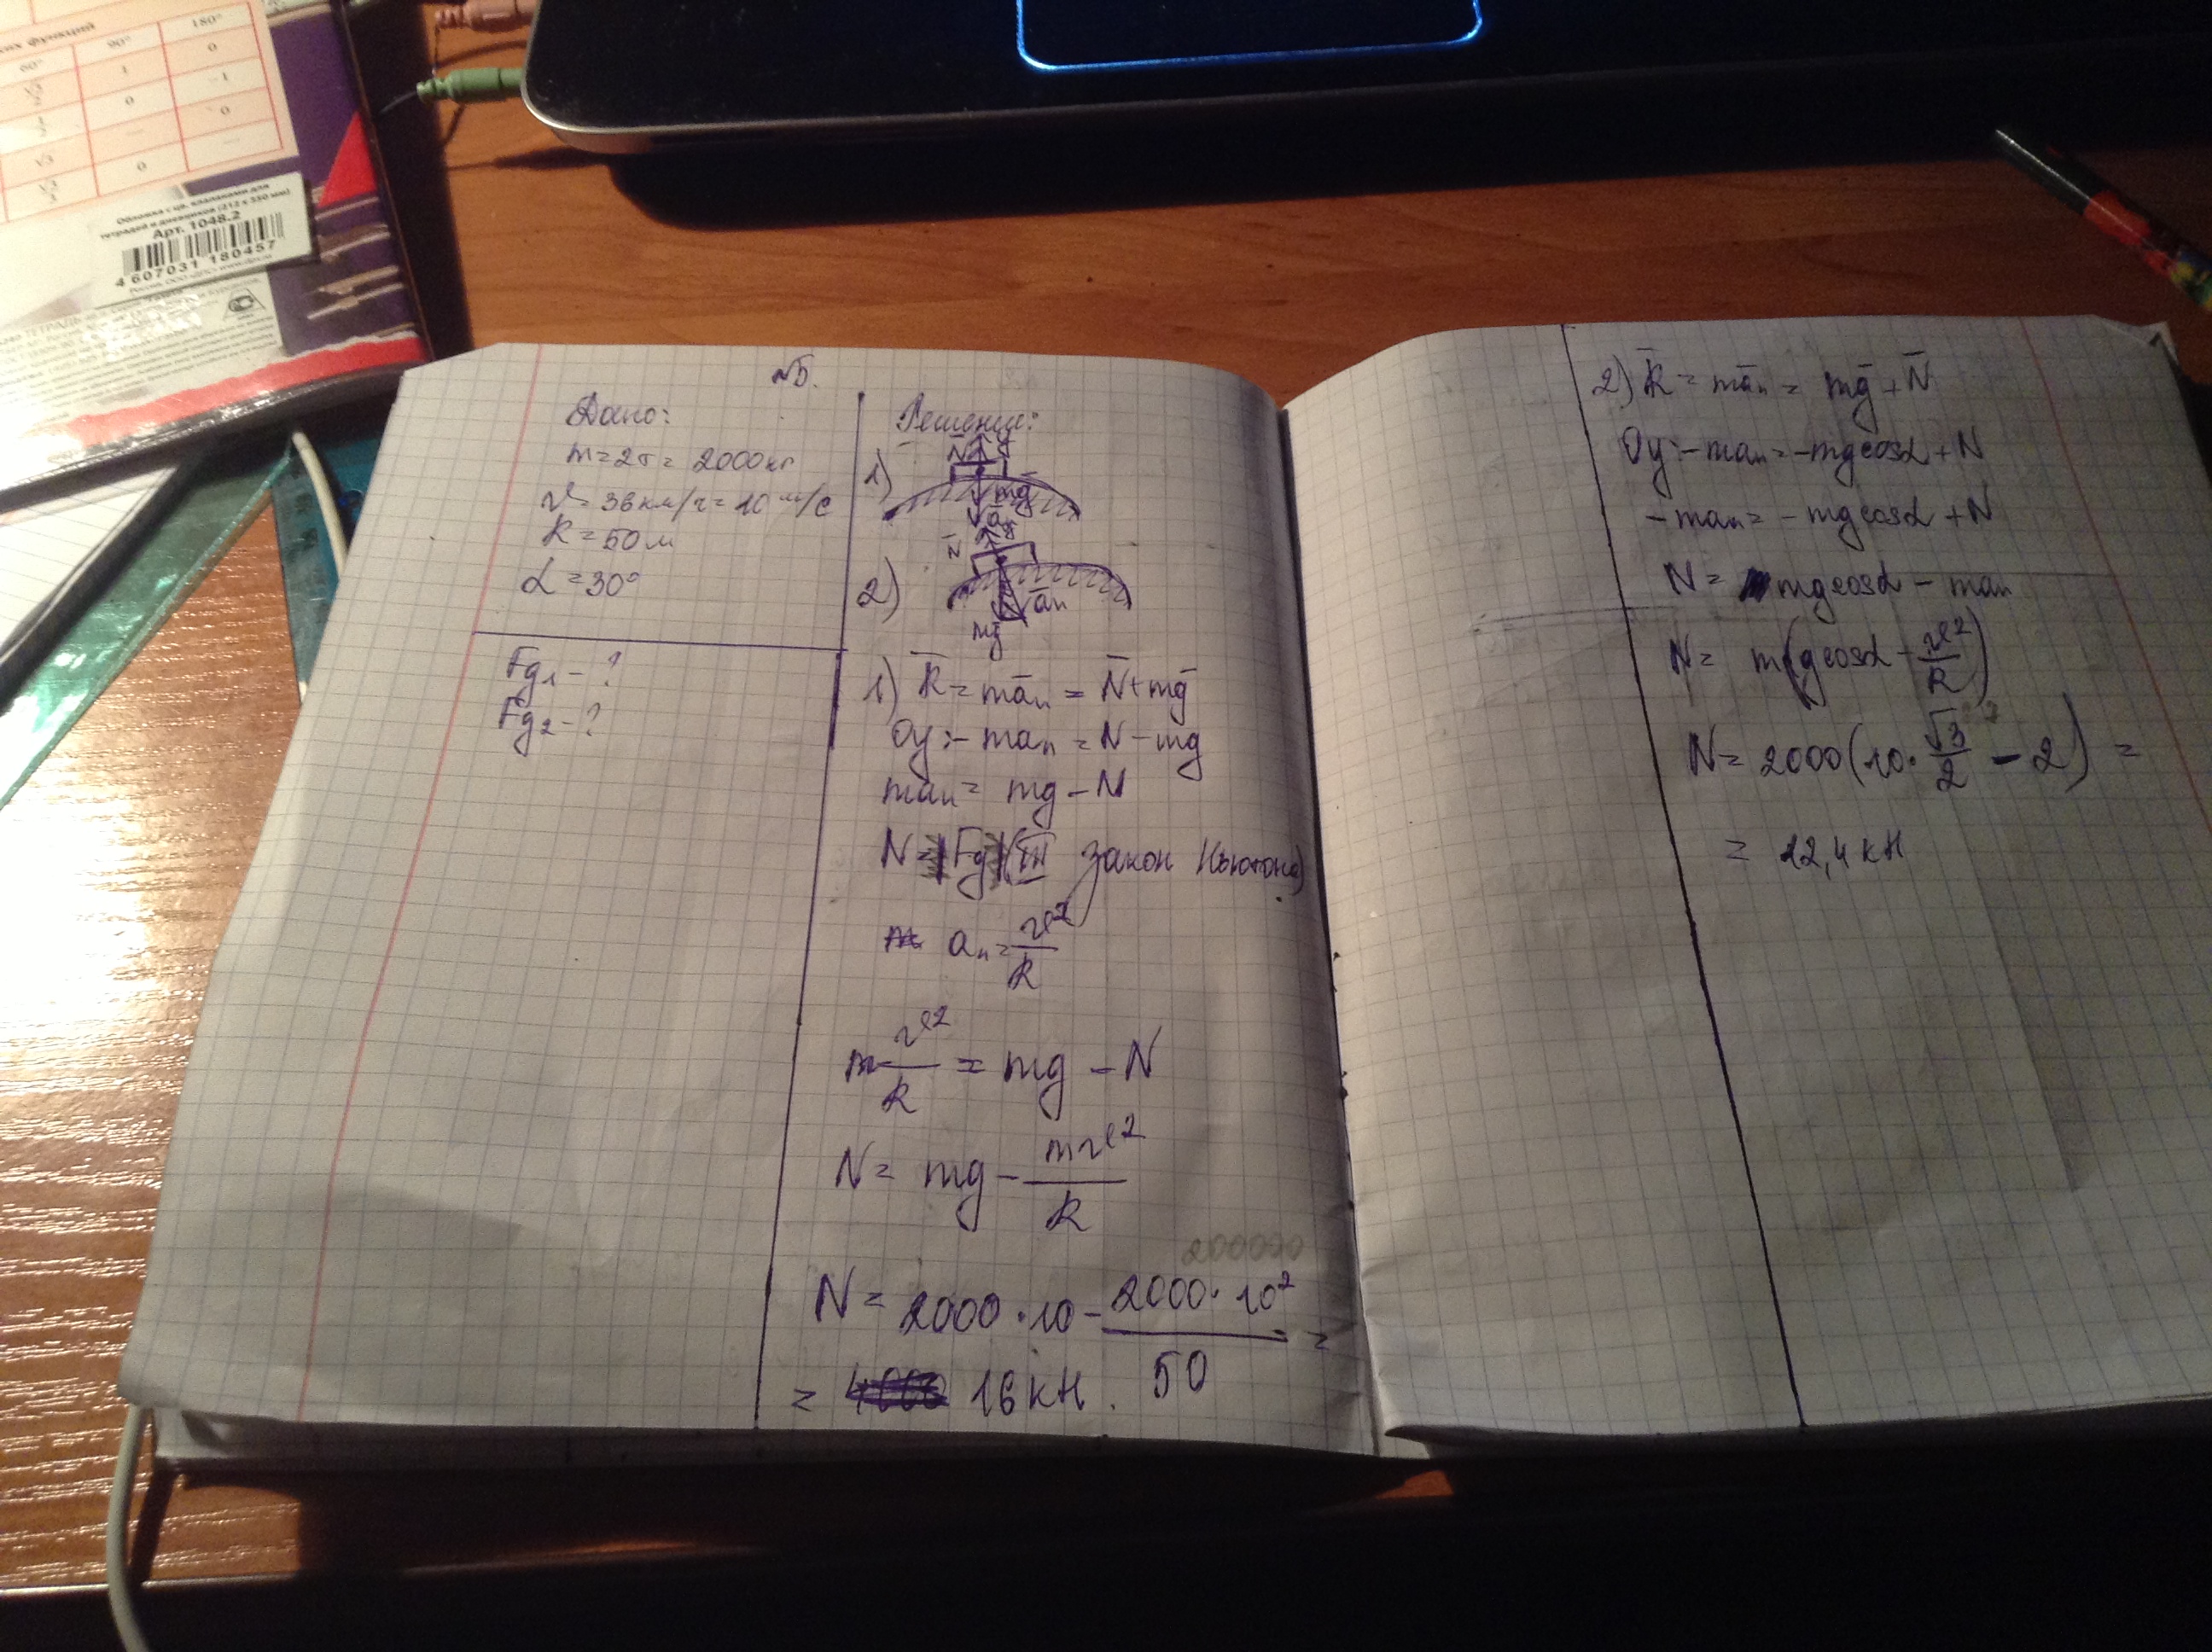 ких функций
60° 90° 180°
√3/2 1 0
1/2 0 -1
√3 — 0
√3/3 0 —
Обложка с цв. клапанами для
тетрадей и дневников (212 x 350 мм)
Арт. 1048.2
4 607031 180457
№5.
Дано:
m=2т= 2000кг
v= 36км/ч=10 м/с
R=50м
α=30°
Fg₁ - ?
Fg₂ - ?
Решение:
1) N̄ y
mḡ
āₙ
2) N̄ y
āₙ
mḡ
1) R̄ = māₙ = N̄+mḡ
Oy: -maₙ = N - mg
maₙ = mg - N
N = |Fg| (III закон Ньютона)
aₙ = v²/R
m v²/R = mg - N
N = mg - mv²/R
200000
N = 2000·10 - 2000·10²/50 =
= 16 кН.
2) R̄ = māₙ = mḡ+N̄
Oy: -maₙ = -mgcosα + N
-maₙ = -mgcosα + N
N = mgcosα - maₙ
N = m(gcosα - v²/R)
N = 2000(10·√3/2 - 2) =
= 12,4 кН